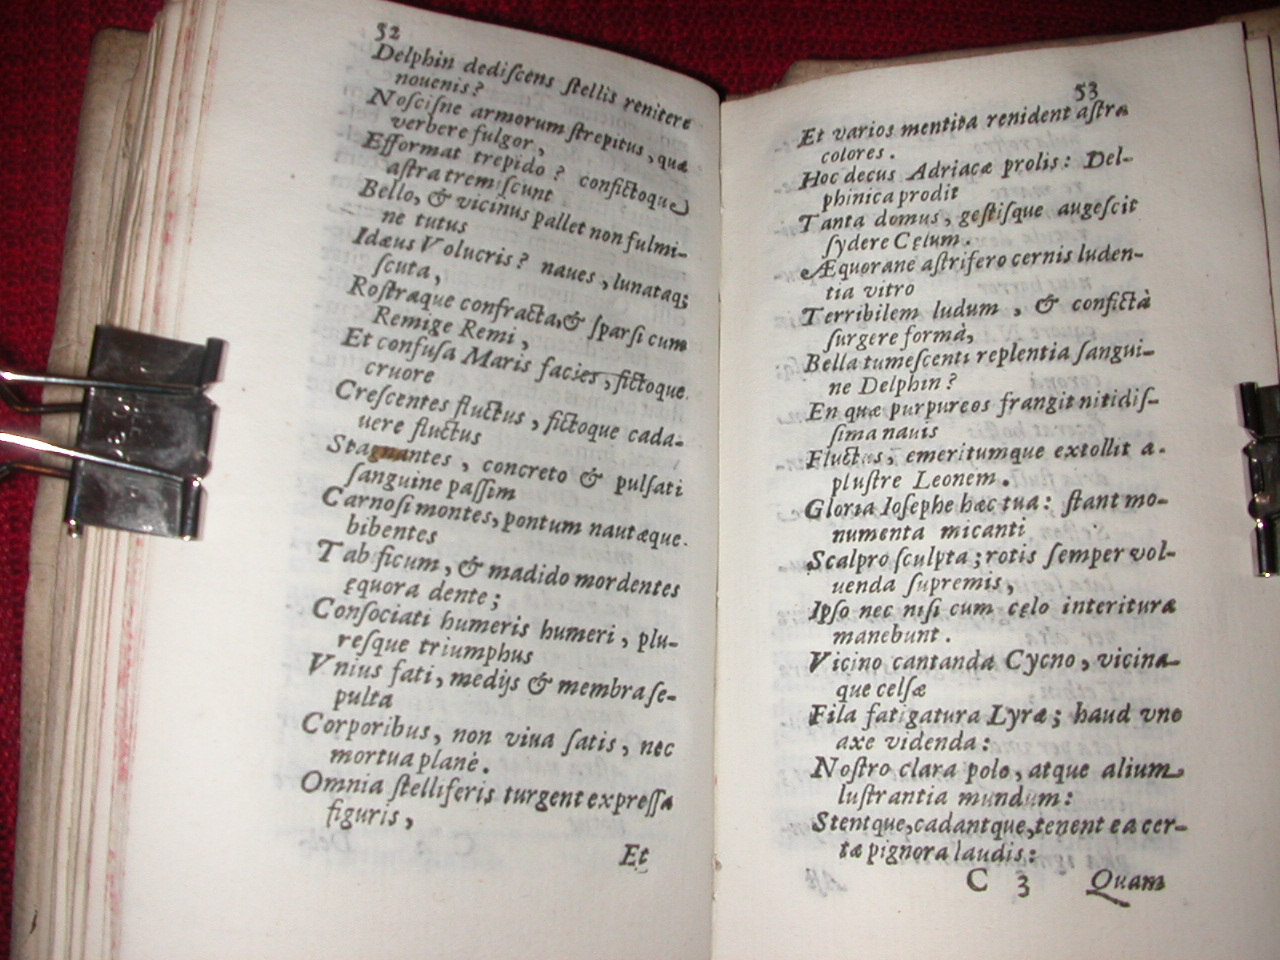 52
Delphin dediſcens ſtellis renitere
nouenis?
Noſciſne armorum ſtrepitus, quæ
verbere fulgor,
Efformat trepido? confictoque
aſtra tremiſcunt
Bello, & vicinus pallet non fulmi-
ne tutus
Idæus Volucris? naues, lunataq;
ſcuta,
Roſtraque confracta, & ſparſi cum
Remige Remi,
Et confuſa Maris facies, fictoque
cruore
Creſcentes fluctus, fictoque cada-
uere fluctus
Stagnantes, concreto & pulſati
ſanguine paſſim
Carnoſi montes, pontum nautæque
bibentes
Tabificum, & madido mordentes
ęquora dente;
Conſociati humeris humeri, plu-
reſque triumphus
Vnius fati, medijs & membra ſe-
pulta
Corporibus, non viua ſatis, nec
mortua planè.
Omnia ſtelliferis turgent expreſſa
figuris,
Et
53
Et varios mentita renident aſtra
colores.
Hoc decus Adriacæ prolis: Del-
phinica prodit
Tanta domus, geſtiſque augeſcit
ſydere Cęlum.
Æquorane aſtrifero cernis luden-
tia vitro
Terribilem ludum, & confictà
ſurgere formà,
Bella tumeſcenti replentia ſangui-
ne Delphin?
En quæ purpureos frangit nitidiſ-
ſima nauis
Fluctus, emeritumque extollit a-
pluſtre Leonem.
Gloria Ioſephe hæc tua: ſtant mo-
numenta micanti
Scalpro ſculpta; rotis ſemper vol-
uenda ſupremis,
Ipſo nec niſi cum cęlo interituræ
manebunt.
Vicino cantanda Cycno, vicina-
que celſæ
Fila fatigatura Lyræ; haud vno
axe videnda:
Noſtro clara polo, atque alium
luſtrantia mundum:
Stentque, cadantque, tenent ea cer-
tæ pignora laudis:
C 3 Quam